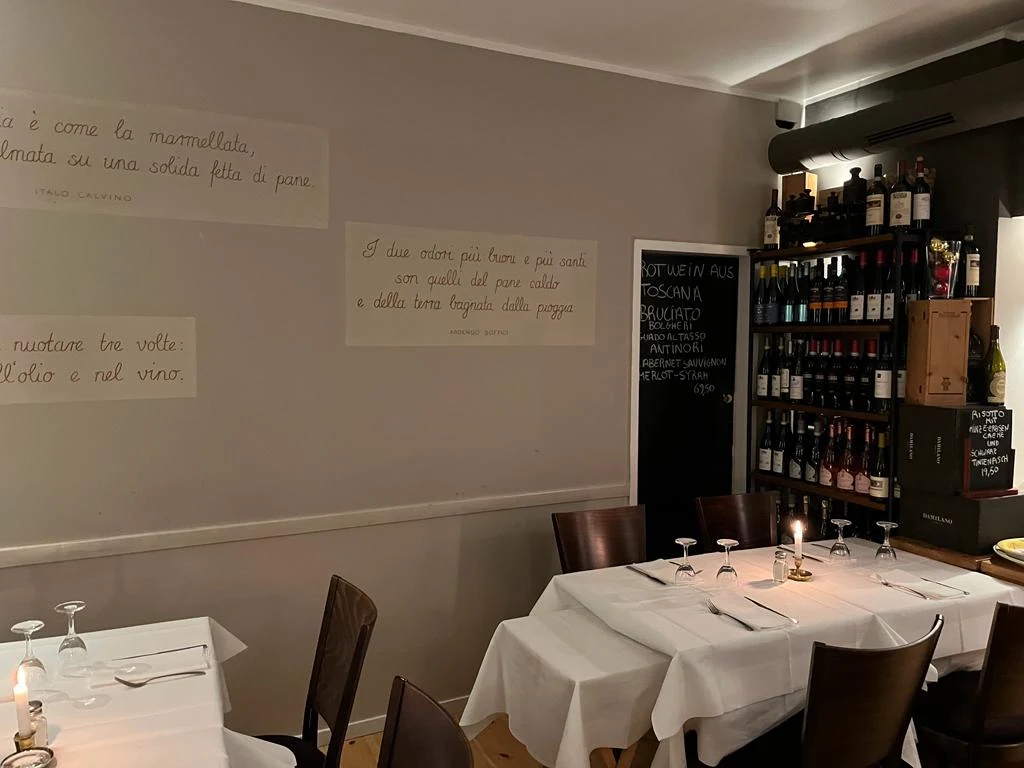 ia è come la marmellata,
lmata su una solida fetta di pane.
ITALO CALVINO
I due odori più buoni e più santi
son quelli del pane caldo
e della terra bagnata dalla pioggia
ARDENGO SOFFICI
nuotare tre volte:
ll'olio e nel vino.
ROTWEIN AUS
TOSCANA
BRUCIATO
BOLGHERI
GUADO AL TASSO
ANTINORI
CABERNET SAUVIGNON
MERLOT-SYRAH
69,50
RISOTTO
MIT
MINZE-ERBSEN
CREME
UND
SCHWARZ
TINTENFISCH
19,50
DAMILANO
DAMILANO